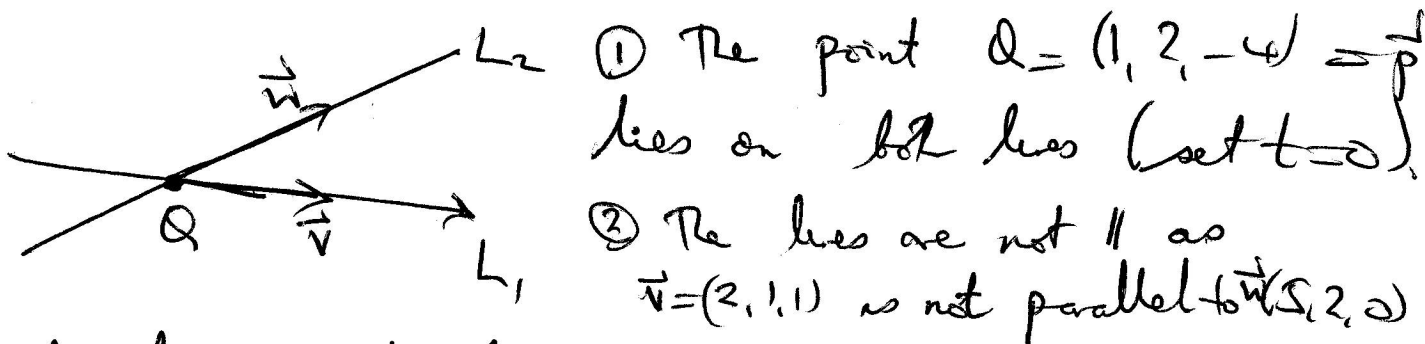 L₂ ① The point Q = (1, 2, -4) = p⃗
w⃗ lies on both lines (set t=0).
Q v⃗ L₁ ② The lines are not ∥ as
v⃗=(2,1,1) is not parallel to w⃗(5,2,0)